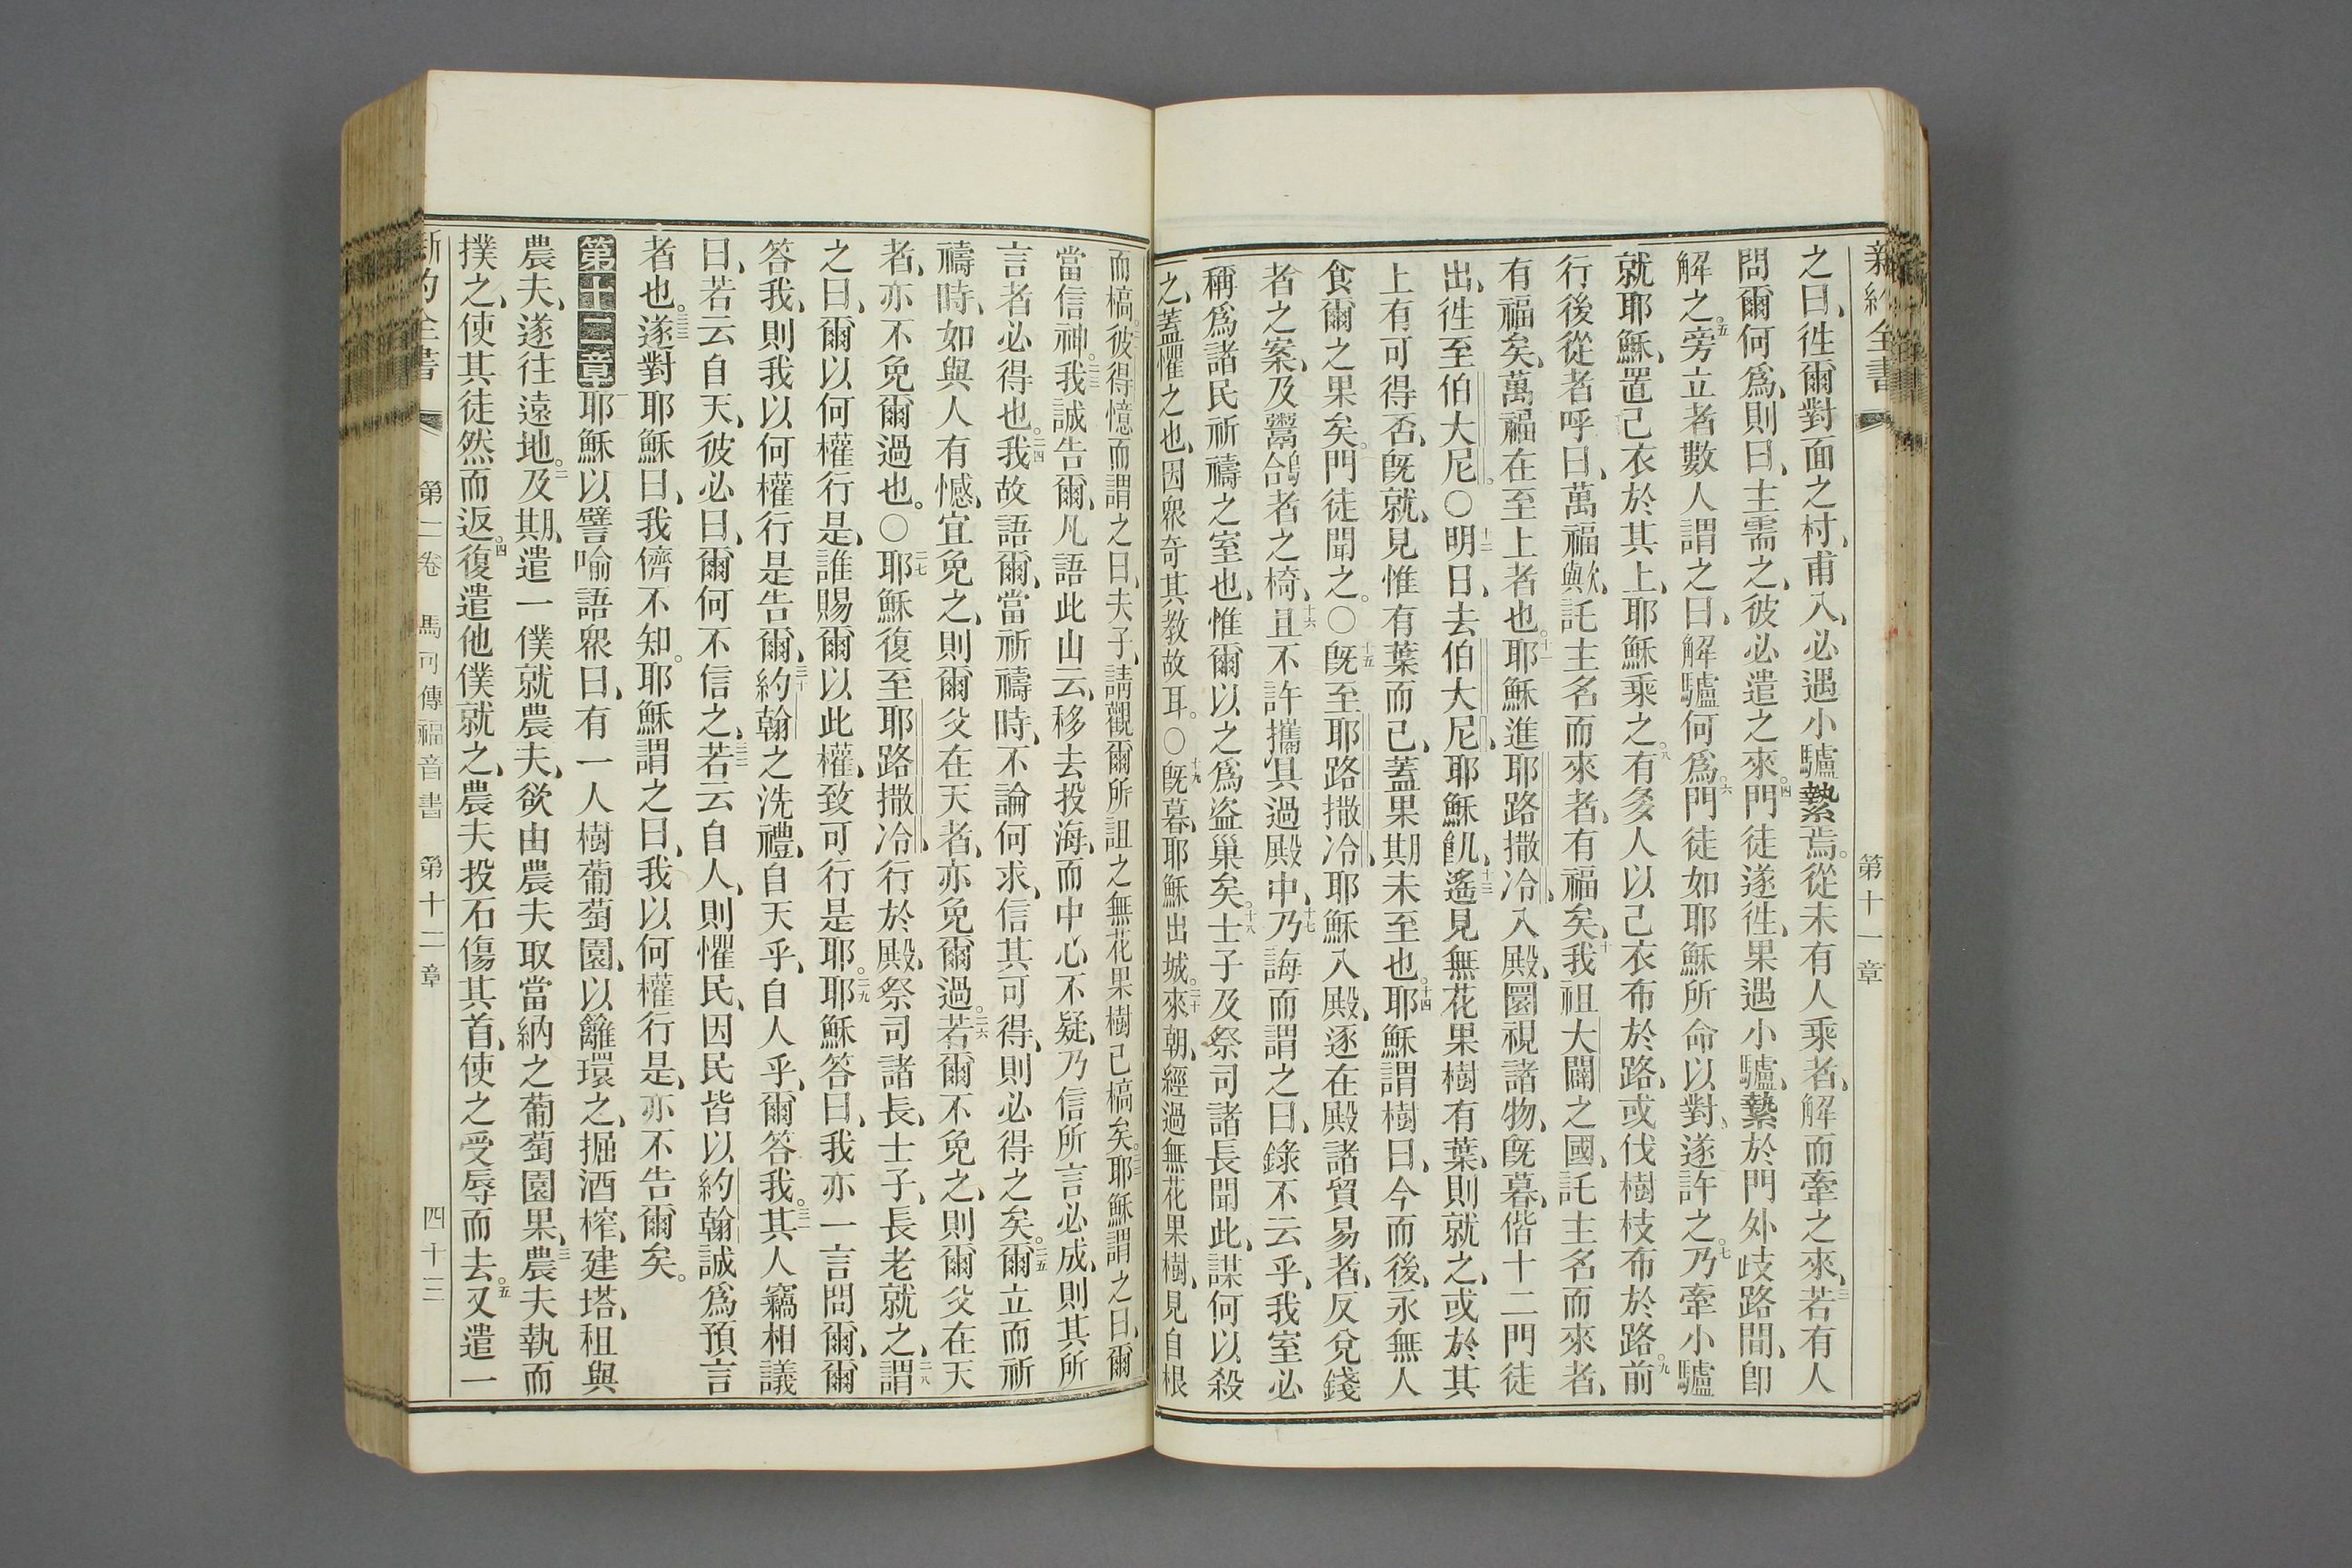 新約全書 第十一章
之曰、徃爾對面之村、甫入、必遇小驢縶焉。從未有人乘者、解而牽之來、三若有人
問爾何爲、則曰、主需之、彼必遣之來。四門徒遂徃、果遇小驢、縶於門外歧路間、卽
解之。五旁立者數人謂之曰、解驢何爲。六門徒如耶穌所命以對、遂許之。七乃牽小驢
就耶穌、置己衣於其上、耶穌乘之。八有多人以己衣布於路、或伐樹枝布於路。九前
行後從者呼曰、萬福歟、託主名而來者、有福矣、十我祖大闢之國、託主名而來者、
有福矣、萬福在至上者也。十一耶穌進耶路撒冷、入殿、圜視諸物、旣暮、偕十二門徒
出、徃至伯大尼。○十二明日、去伯大尼、耶穌飢、十三遙見無花果樹有葉、則就之、或於其
上有可得否、旣就、見惟有葉而已、蓋果期未至也。十四耶穌謂樹曰、今而後、永無人
食爾之果矣。門徒聞之。○十五旣至耶路撒冷、耶穌入殿、逐在殿諸貿易者、反兌錢
者之案、及鬻鴿者之椅、十六且不許攜具過殿中、十七乃誨而謂之曰、錄不云乎、我室必
稱爲諸民祈禱之室也、惟爾以之爲盜巢矣。十八士子及祭司諸長聞此、謀何以殺
之、蓋懼之也、因衆奇其教故耳。○十九旣暮、耶穌出城。二十來朝、經過無花果樹、見自根
而槁。彼得憶而謂之曰、夫子、請觀爾所詛之無花果樹已槁矣。耶穌謂之曰、爾
當信神。二三我誠告爾、凡語此山云、移去投海、而中心不疑、乃信所言必成、則其所
言者必得也。二四我故語爾、當祈禱時、不論何求、信其可得、則必得之矣。二五爾立而祈
禱時、如與人有憾、宜免之、則爾父在天者、亦免爾過。二六若爾不免之、則爾父在天
者、亦不免爾過也。○二七耶穌復至耶路撒冷、行於殿、祭司諸長、士子、長老就之、二八謂
之曰、爾以何權行是、誰賜爾以此權、致可行是耶。二九耶穌答曰、我亦一言問爾、爾
答我、則我以何權行是告爾、三十約翰之洗禮、自天乎、自人乎、爾答我。三一其人竊相議
曰、若云自天、彼必曰、爾何不信之、三二若云自人、則懼民、因民皆以約翰誠爲預言
者也。三三遂對耶穌曰、我儕不知。耶穌謂之曰、我以何權行是、亦不告爾矣。
第十二章 一耶穌以譬喻語衆曰、有一人樹葡萄園、以籬環之、掘酒榨、建塔、租與
農夫、遂往遠地。二及期、遣一僕就農夫、欲由農夫取當納之葡萄園果、三農夫執而
撲之、使其徒然而返。四復遣他僕就之、農夫投石傷其首、使之受辱而去。五又遣一
新約全書 第二卷 馬可傳福音書 第十二章 四十三